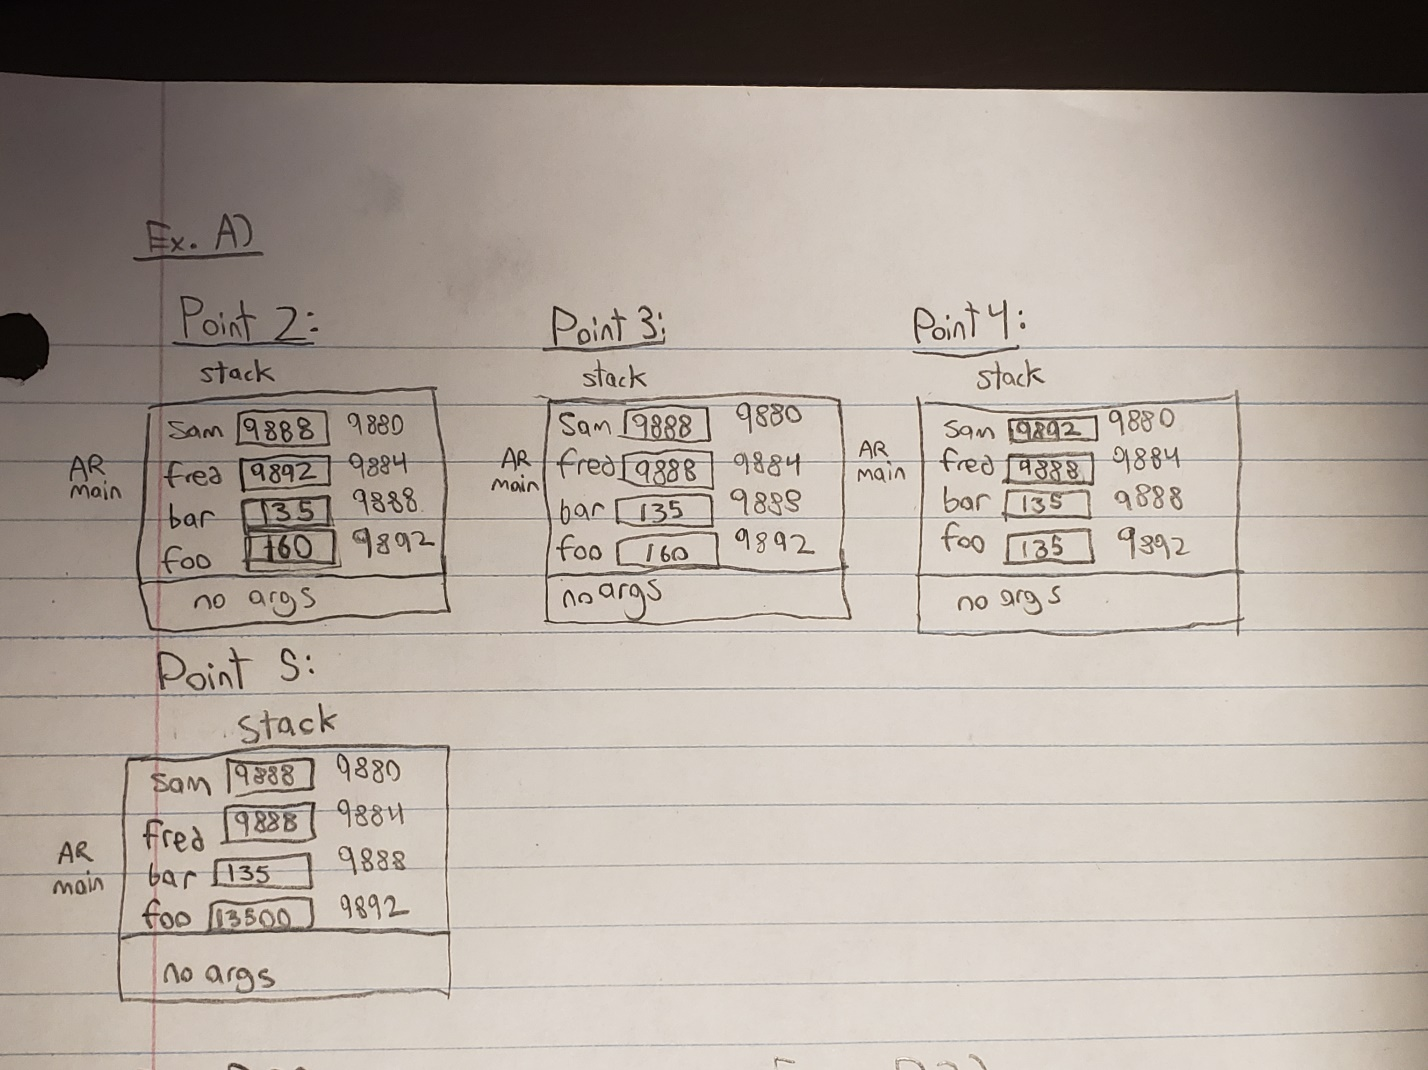 Ex. A)
Point 2:
stack
AR main
sam 9888 9880
fred 9892 9884
bar 135 9888
foo 160 9892
no args
Point 3:
stack
AR main
sam 9888 9880
fred 9888 9884
bar 135 9888
foo 160 9892
no args
Point 4:
stack
AR main
sam 9892 9880
fred 9888 9884
bar 135 9888
foo 135 9892
no args
Point 5:
stack
AR main
sam 9888 9880
fred 9888 9884
bar 135 9888
foo 13500 9892
no args